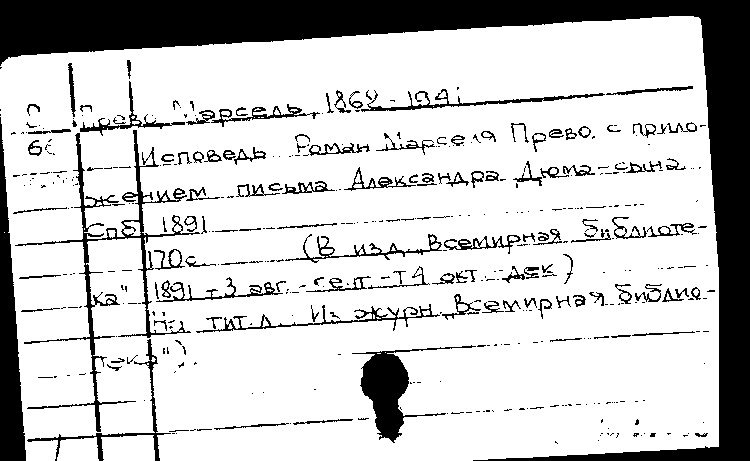 Прево, Марсель, 1862-1941
Исповедь Роман Марселя Прево. с прило-
жением письма Александра Дюма-сына
Спб, 1891
170с. (В изд. „Всемирная библиоте-
ка" 1891 т.3 авг.-сент.-т4 окт.-дек)
На тит.л.: Из журн. „Всемирная библио-
тека").